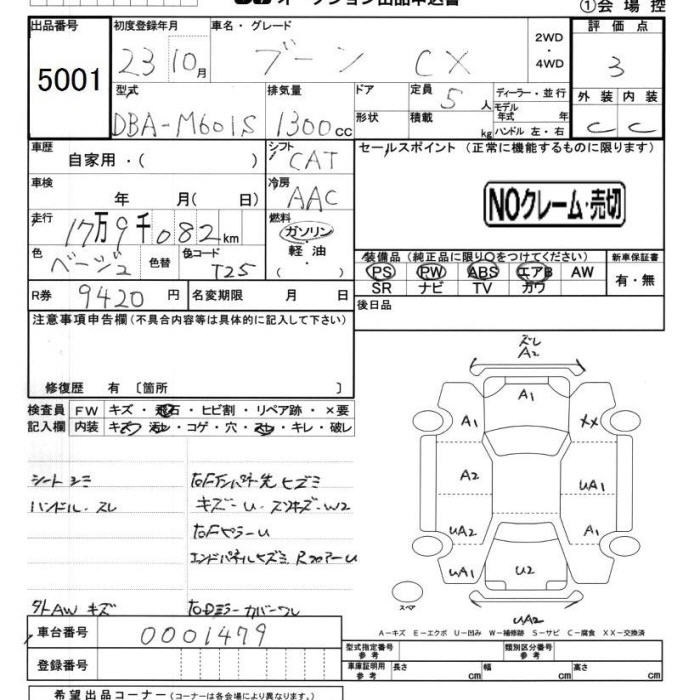 オークション出品申込書 ①会場控
出品番号 初度登録年月 車名・グレード 2WD・4WD 評価点
5001 23 10月 ブーン CX 3
型式 排気量 ドア 定員 5人 ディーラー・並行 外装 内装
DBA-M601S 1300cc 形状 積載 kg モデル年式 年 C C
ハンドル 左・右
車歴 自家用・( ) シフト CAT セールスポイント (正常に機能するものに限ります)
車検 年 月( 日) 冷房 AAC NOクレーム・売切
走行 17万9千082km 燃料 ガソリン・軽油・( )
色 ベージュ 色替 色コード T25
装備品 (純正品に限り○をつけてください) 新車保証書
PS PW ABS エアB AW 有・無
SR ナビ TV カワ
R券 9420円 名変期限 月 日 後日品
注意事項申告欄(不具合内容等は具体的に記入して下さい)
修復歴 有 〔箇所 〕
検査員 FW キズ・飛石・ヒビ割・リペア跡・×要
記入欄 内装 キズ・汚レ・コゲ・穴・スレ・キレ・破レ
シートシミ
ハンドル・スレ
キズ-U
エンドパネルヒズミ
外AW キズ
ズレ
A2
A1
A1 XX
A2 UA1
UA2 A1
UA1 U2
スペア
UA2
A-キズ E-エクボ U-凹み W-補修跡 S-サビ C-腐食 XX-交換済
車台番号 0001479
型式指定番号 参考 類別区分番号 参考
登録番号 車庫証明用 参考 長さ cm 幅 cm 高さ cm
希望出品コーナー(コーナーは各会場により異なります。)